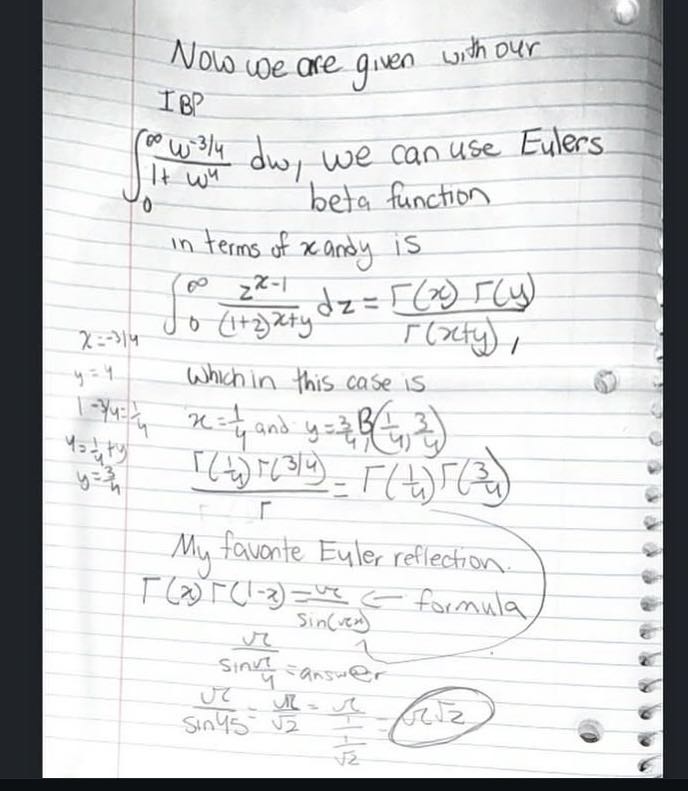 Now we are given with our
IBP
∫₀^∞ w^(-3/4) / (1 + w^4) dw, we can use Eulers
beta function
in terms of x and y is
∫₀^∞ z^(x-1) / (1+z)^(x+y) dz = Γ(x) Γ(y) / Γ(x+y) ,
x = -3/4
y = 4
1 - 3/4 = 1/4
4 = 1/4 + y
y = 3/4
Which in this case is
x = 1/4 and y = 3/4, B(1/4, 3/4)
Γ(1/4) Γ(3/4) / Γ = Γ(1/4) Γ(3/4)
My favorite Euler reflection.
Γ(x) Γ(1-x) = π / sin(πx) ← formula
π / sin π/4 = answer
π / sin 45 = π / √2 = π / (1 / (1/√2)) = π√2